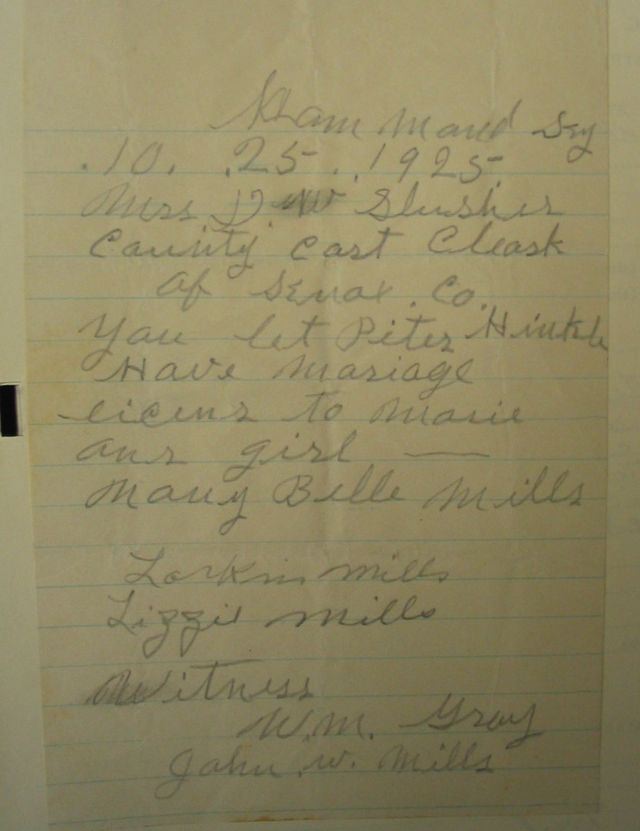 Ham mond Sey
.10. .25. .1925
Mrs D W Slusher
County cort Cleark
of Senox. Co.
You let Peter Hinkle
Have Mariage
licens to Marie
our girl —
Mary Belle Mills
Larkin Mills
Lizzie Mills
Witness
W.M. Gray
John. W. Mills